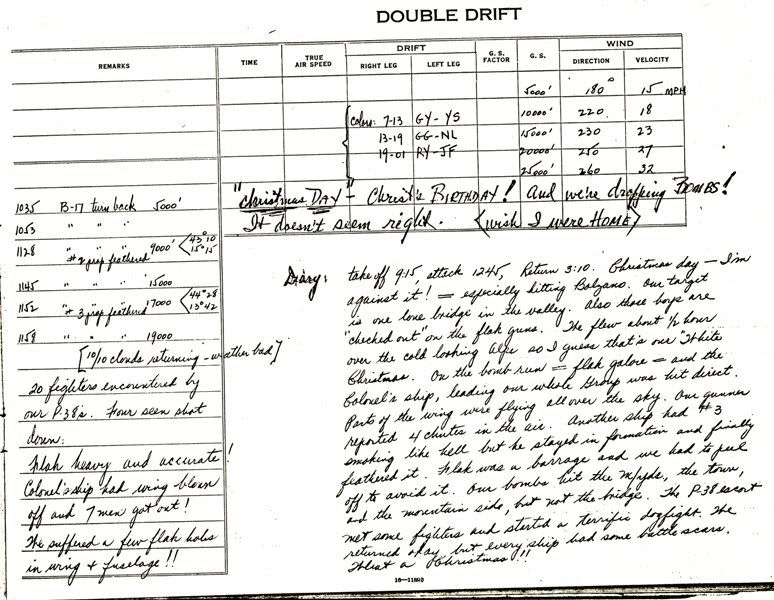 DOUBLE DRIFT
REMARKS
TIME
TRUE AIR SPEED
DRIFT
RIGHT LEG
LEFT LEG
G. S. FACTOR
G. S.
WIND
DIRECTION
VELOCITY
5000' 180° 15 MPH
colors: 7-13 GY-YS 10000' 220 18
13-19 GG-NL 15000' 230 23
19-01 RY-JF 20000' 250 27
25000' 260 32
"Christmas DAY" - Christ's BIRTHDAY! And we're dropping BOMBS!
It doesn't seem right. (wish I were HOME)
1035 B-17 turn back 5000'
1053 " " "
1128 " " " 9000' 43°10
#2 prop feathered 15°15
1145 " " " 15000
1152 " " " 17000 44°28
#3 prop feathered 13°42
1158 " " " 19000
[10/10 clouds returning - weather bad]
20 fighters encountered by
our P-38's. Four seen shot
down.
Flak heavy and accurate!
Colonel's ship had wing blown
off and 7 men got out!
We suffered a few flak holes
in wing + fuselage!!
Diary: take off 9:15, attack 1245, Return 3:10. Christmas day — I'm
against it! — especially hitting Bolzano. Our target
is one lone bridge in the valley. Also those boys are
"checked out" on the flak guns. We flew about ½ hour
over the cold looking Alps so I guess that's our White
Christmas. On the bomb run — flak galore — and the
Colonel's ship, leading our whole Group was hit direct.
Parts of the wing were flying all over the sky. Our gunner
reported 4 chutes in the air. Another ship had #3
smoking like hell but he stayed in formation and finally
feathered it. Flak was a barrage and we had to peel
off to avoid it. Our bombs hit the M/yds, the town,
and the mountain side, but not the bridge. The P-38 escort
met some fighters and started a terrific dogfight. We
returned okay but every ship had some battle scars.
What a Christmas!!!